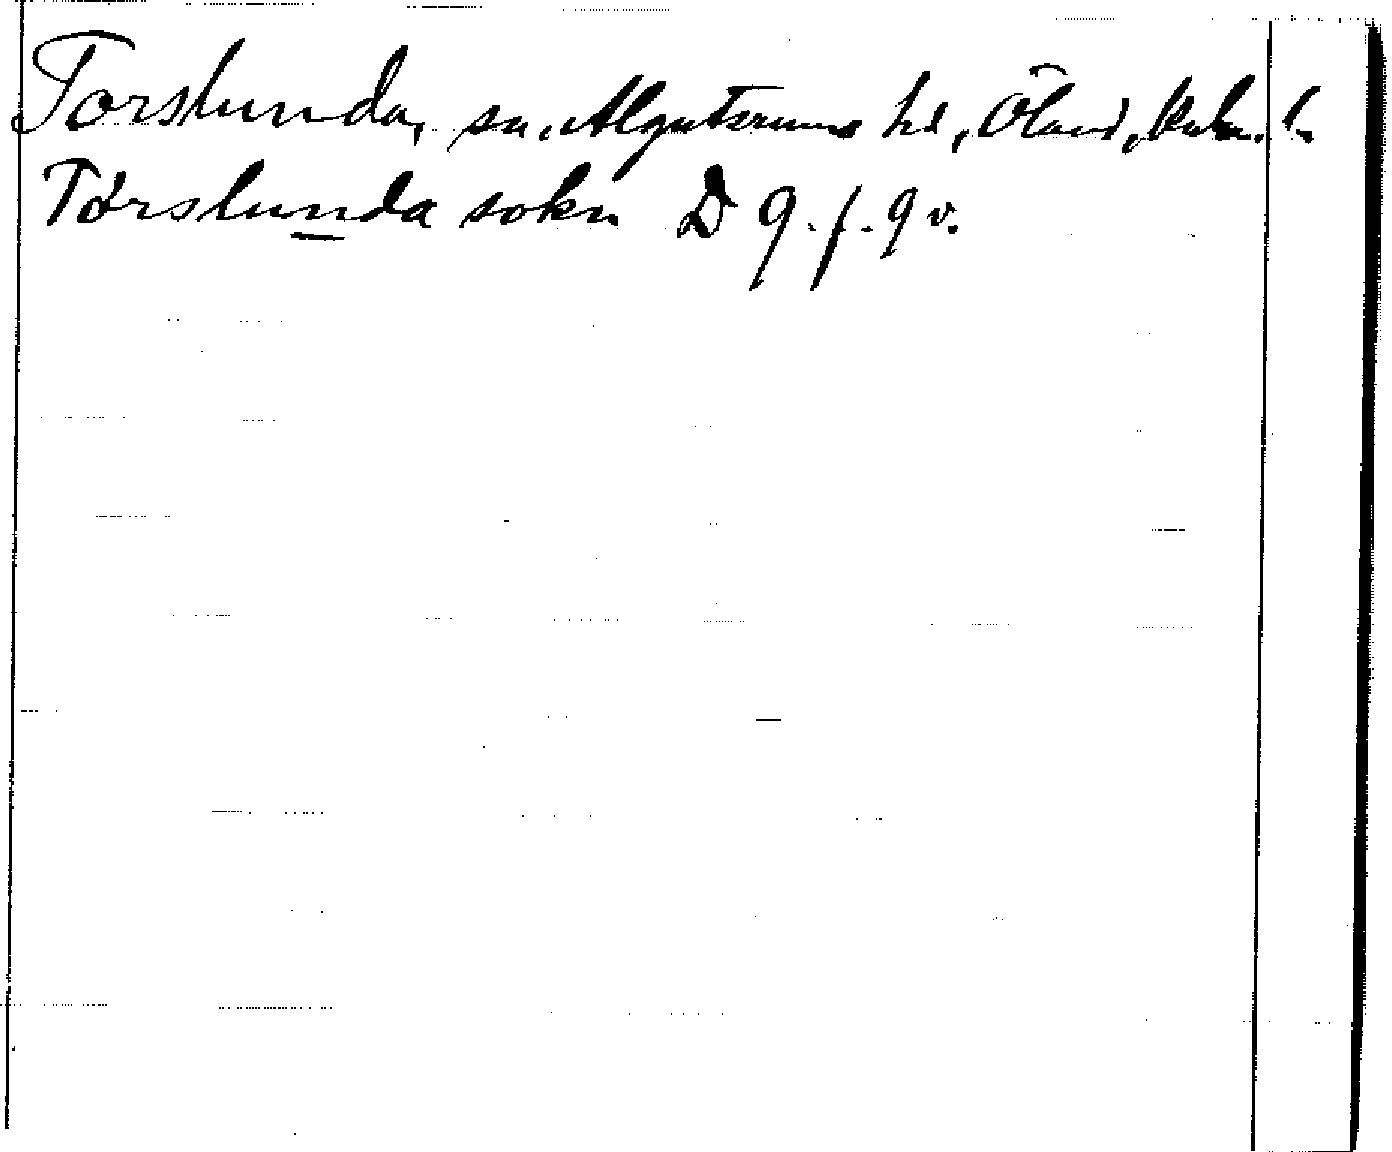 Torslunda, sn, Algutsrums hd, Öland, Kalm. l.
Tørslunda sokn D 9.f.9 v.